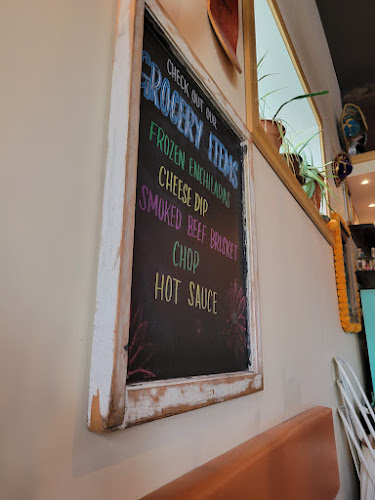 CHECK OUT OUR
GROCERY ITEMS
FROZEN ENCHILADAS
CHEESE DIP
SMOKED BEEF BRISKET
CHOP
HOT SAUCE